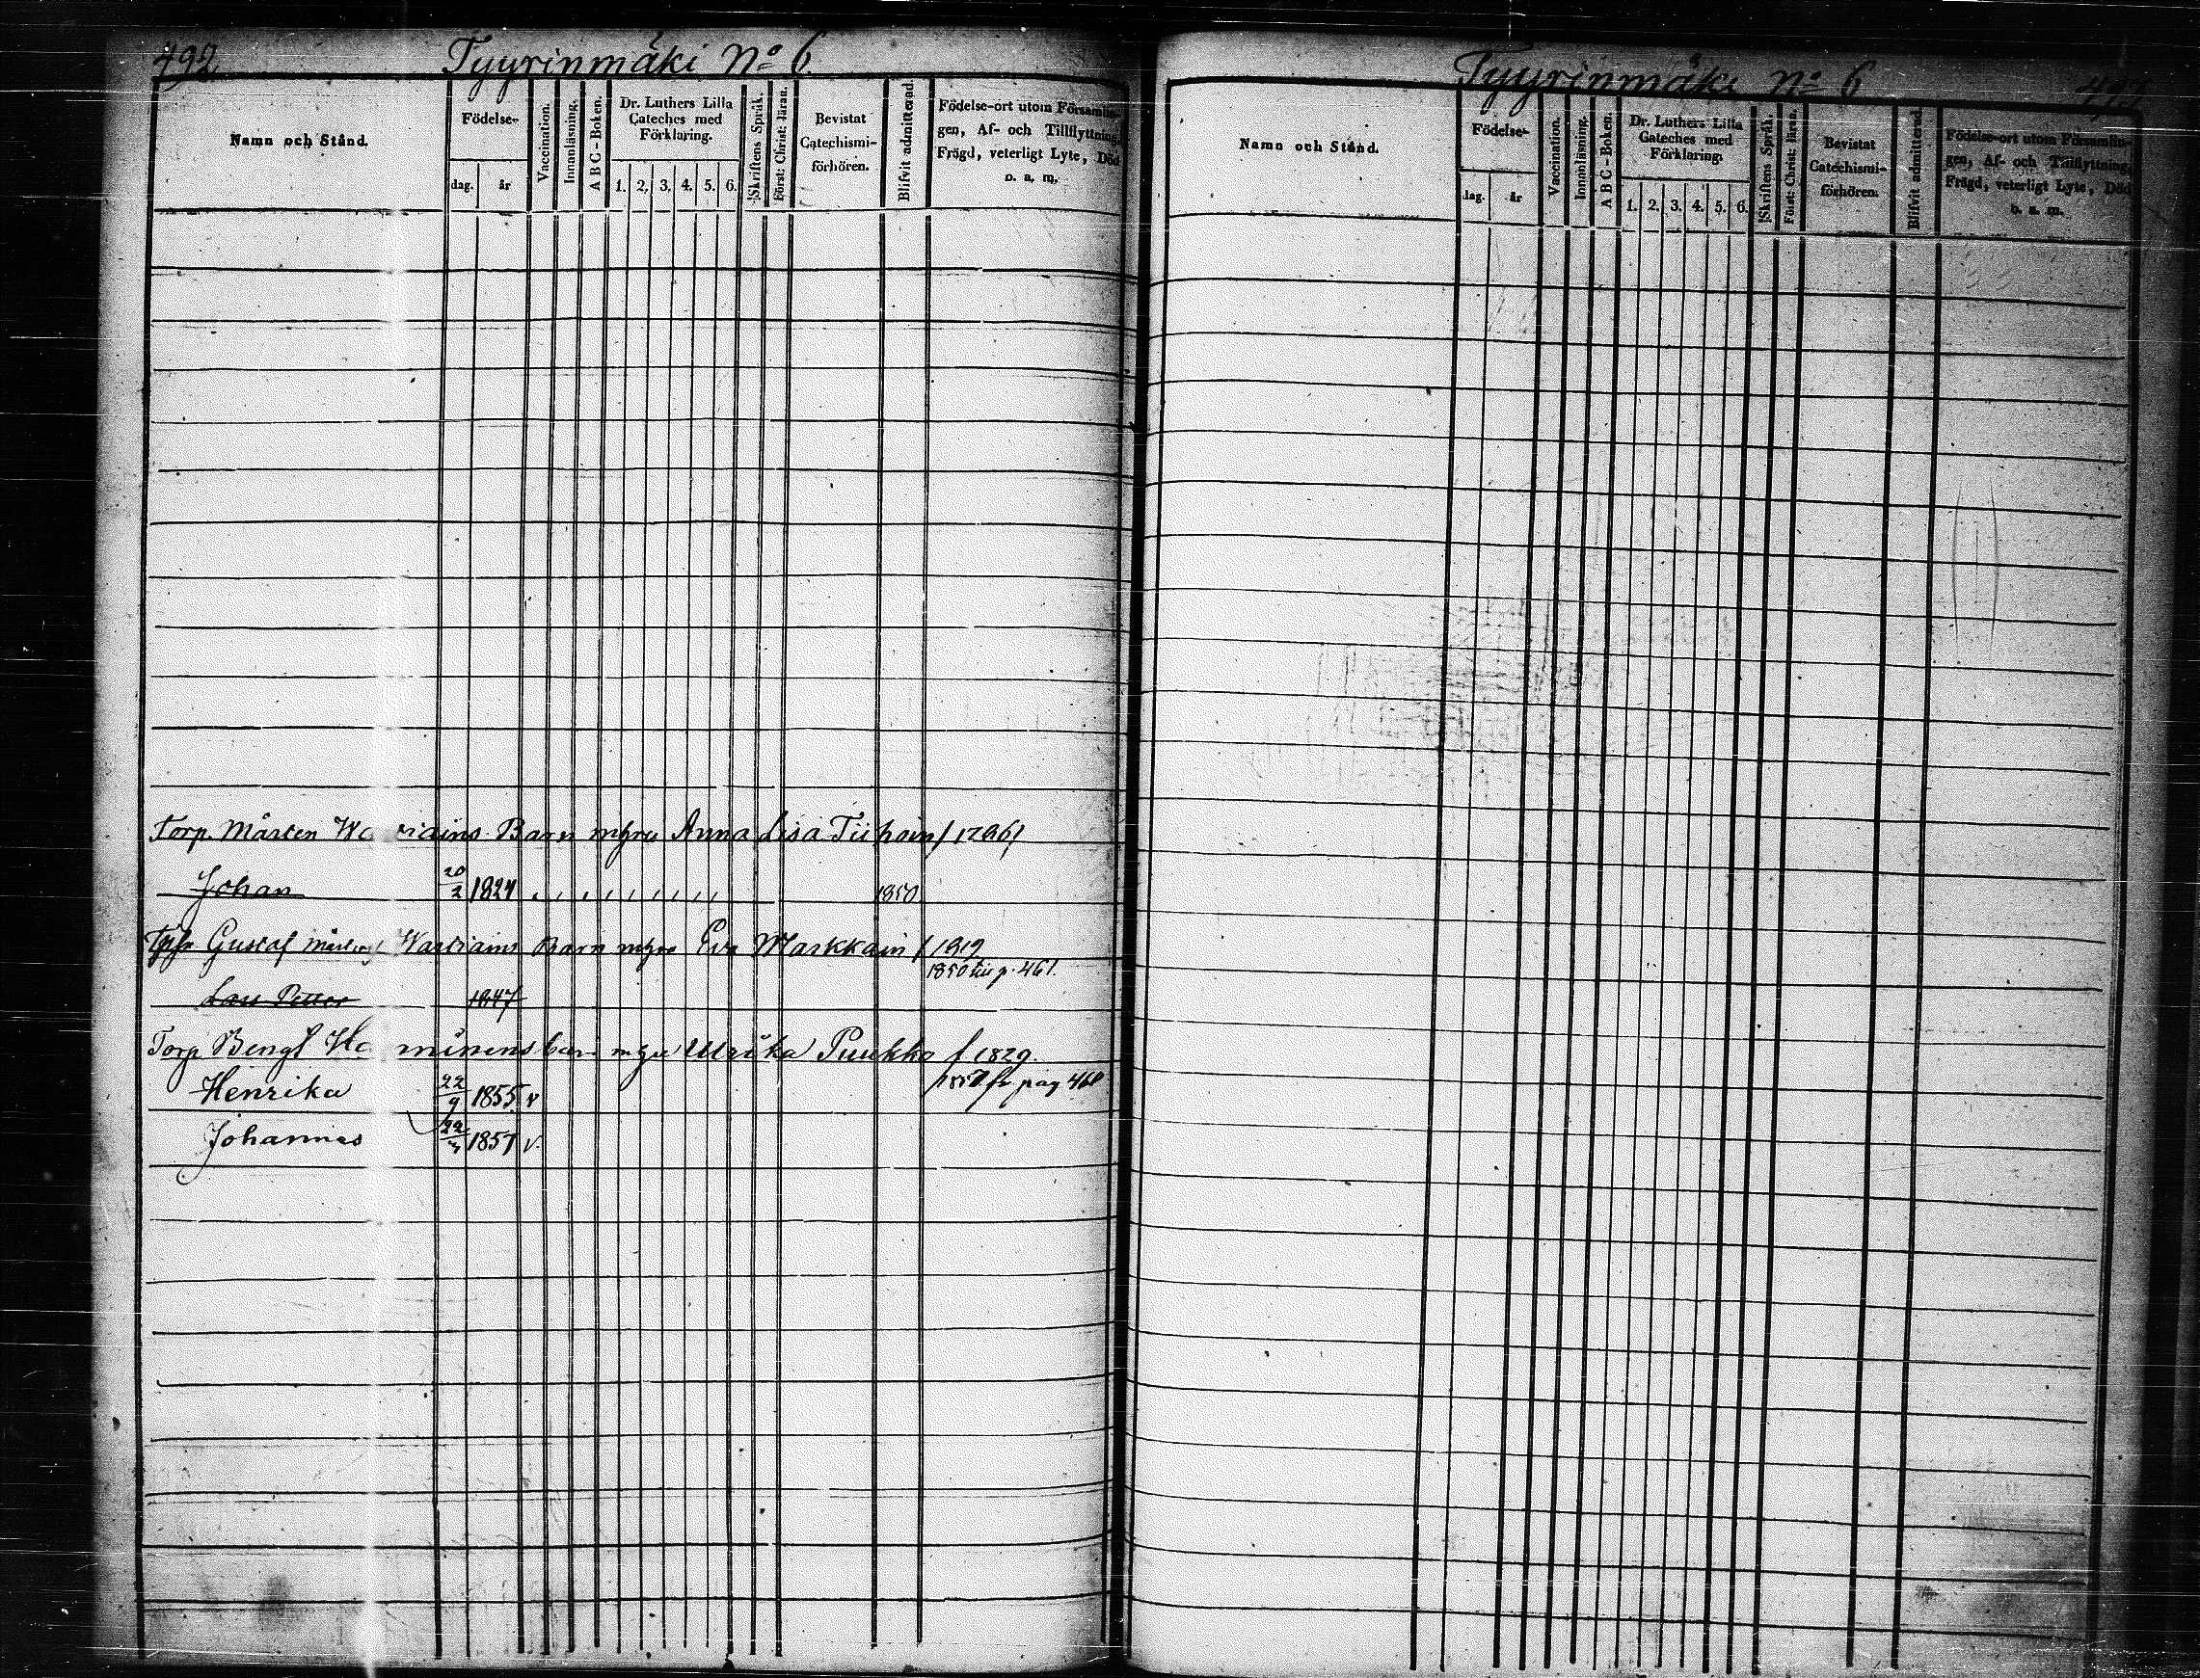 492 Tyyrinmäki No 6.
Namn och Stånd.
Födelse-
dag. år
Vaccination.
Innanläsning.
A B C - Boken.
Dr. Luthers Lilla
Cateches med
Förklaring.
1. 2. 3. 4. 5. 6.
Skriftens Språk.
Först: Christ: läran.
Bevistat
Catechismi-
förhören.
Blifvit admitterad.
Födelse-ort utom Församlin-
gen, Af- och Tillflyttning,
Frägd, veterligt Lyte, Död
o. a. m.
Torp. Mårten Barn m hru Anna Lisa Tiihoin
Johan 20/2 1824 1850
Gustaf Wartiains Barn m hru Eva Markkain f 1819
1850 till p. 461
Lars Petter 1847
Torp Bengt barn m hru Ulrika Puukko f 1829.
Henrika 22/9 1855 v fr pag 460
Johannes 1857 v.
Tyyrinmäki No 6 493
Namn och Stånd.
Födelse-
dag. år
Vaccination.
Innanläsning.
A B C - Boken.
Dr. Luthers Lilla
Cateches med
Förklaring.
1. 2. 3. 4. 5. 6.
Skriftens Språk.
Först: Christ: läran.
Bevistat
Catechismi-
förhören.
Blifvit admitterad.
Födelse-ort utom Församlin-
gen, Af- och Tillflyttning,
Frägd, veterligt Lyte, Död
o. a. m.